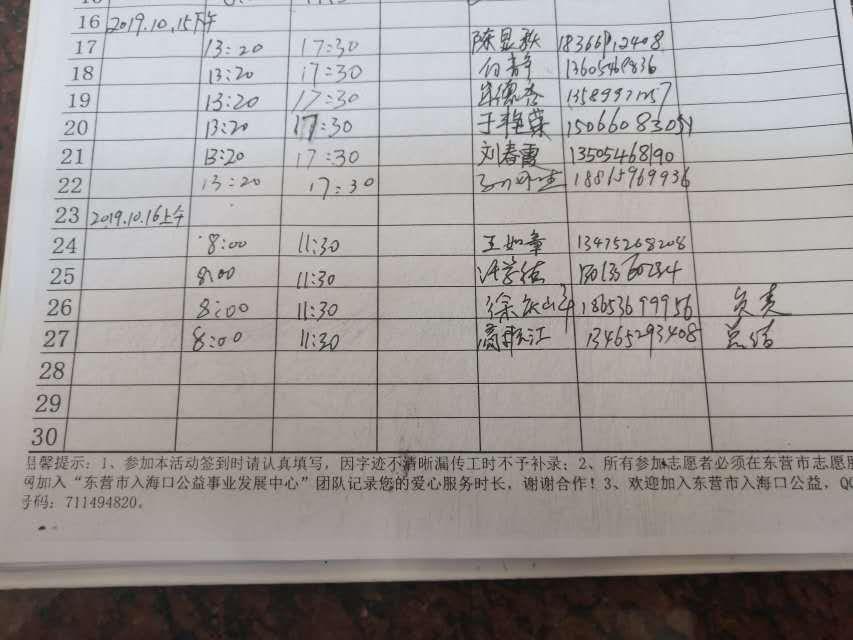 16 2019.10.15下午
17 13:20 17:30
18 13:20 17:30 13605469836
19 13:20 17:30
20 13:20 17:30 15066083051
21 13:20 17:30 刘春雷 13505468190
22 13:20 17:30 18815969936
23 2019.10.16上午
24 8:00 11:30 王如章 13475268208
25 8:00 11:30
26 8:00 11:30 18653699956 负责
27 8:00 11:30 13465293408 总结
28
29
30
温馨提示：1、参加本活动签到时请认真填写，因字迹不清晰漏传工时不予补录；2、所有参加志愿者必须在东营市志愿服
网加入“东营市入海口公益事业发展中心”团队记录您的爱心服务时长，谢谢合作！3、欢迎加入东营市入海口公益，QQ
号码：711494820。